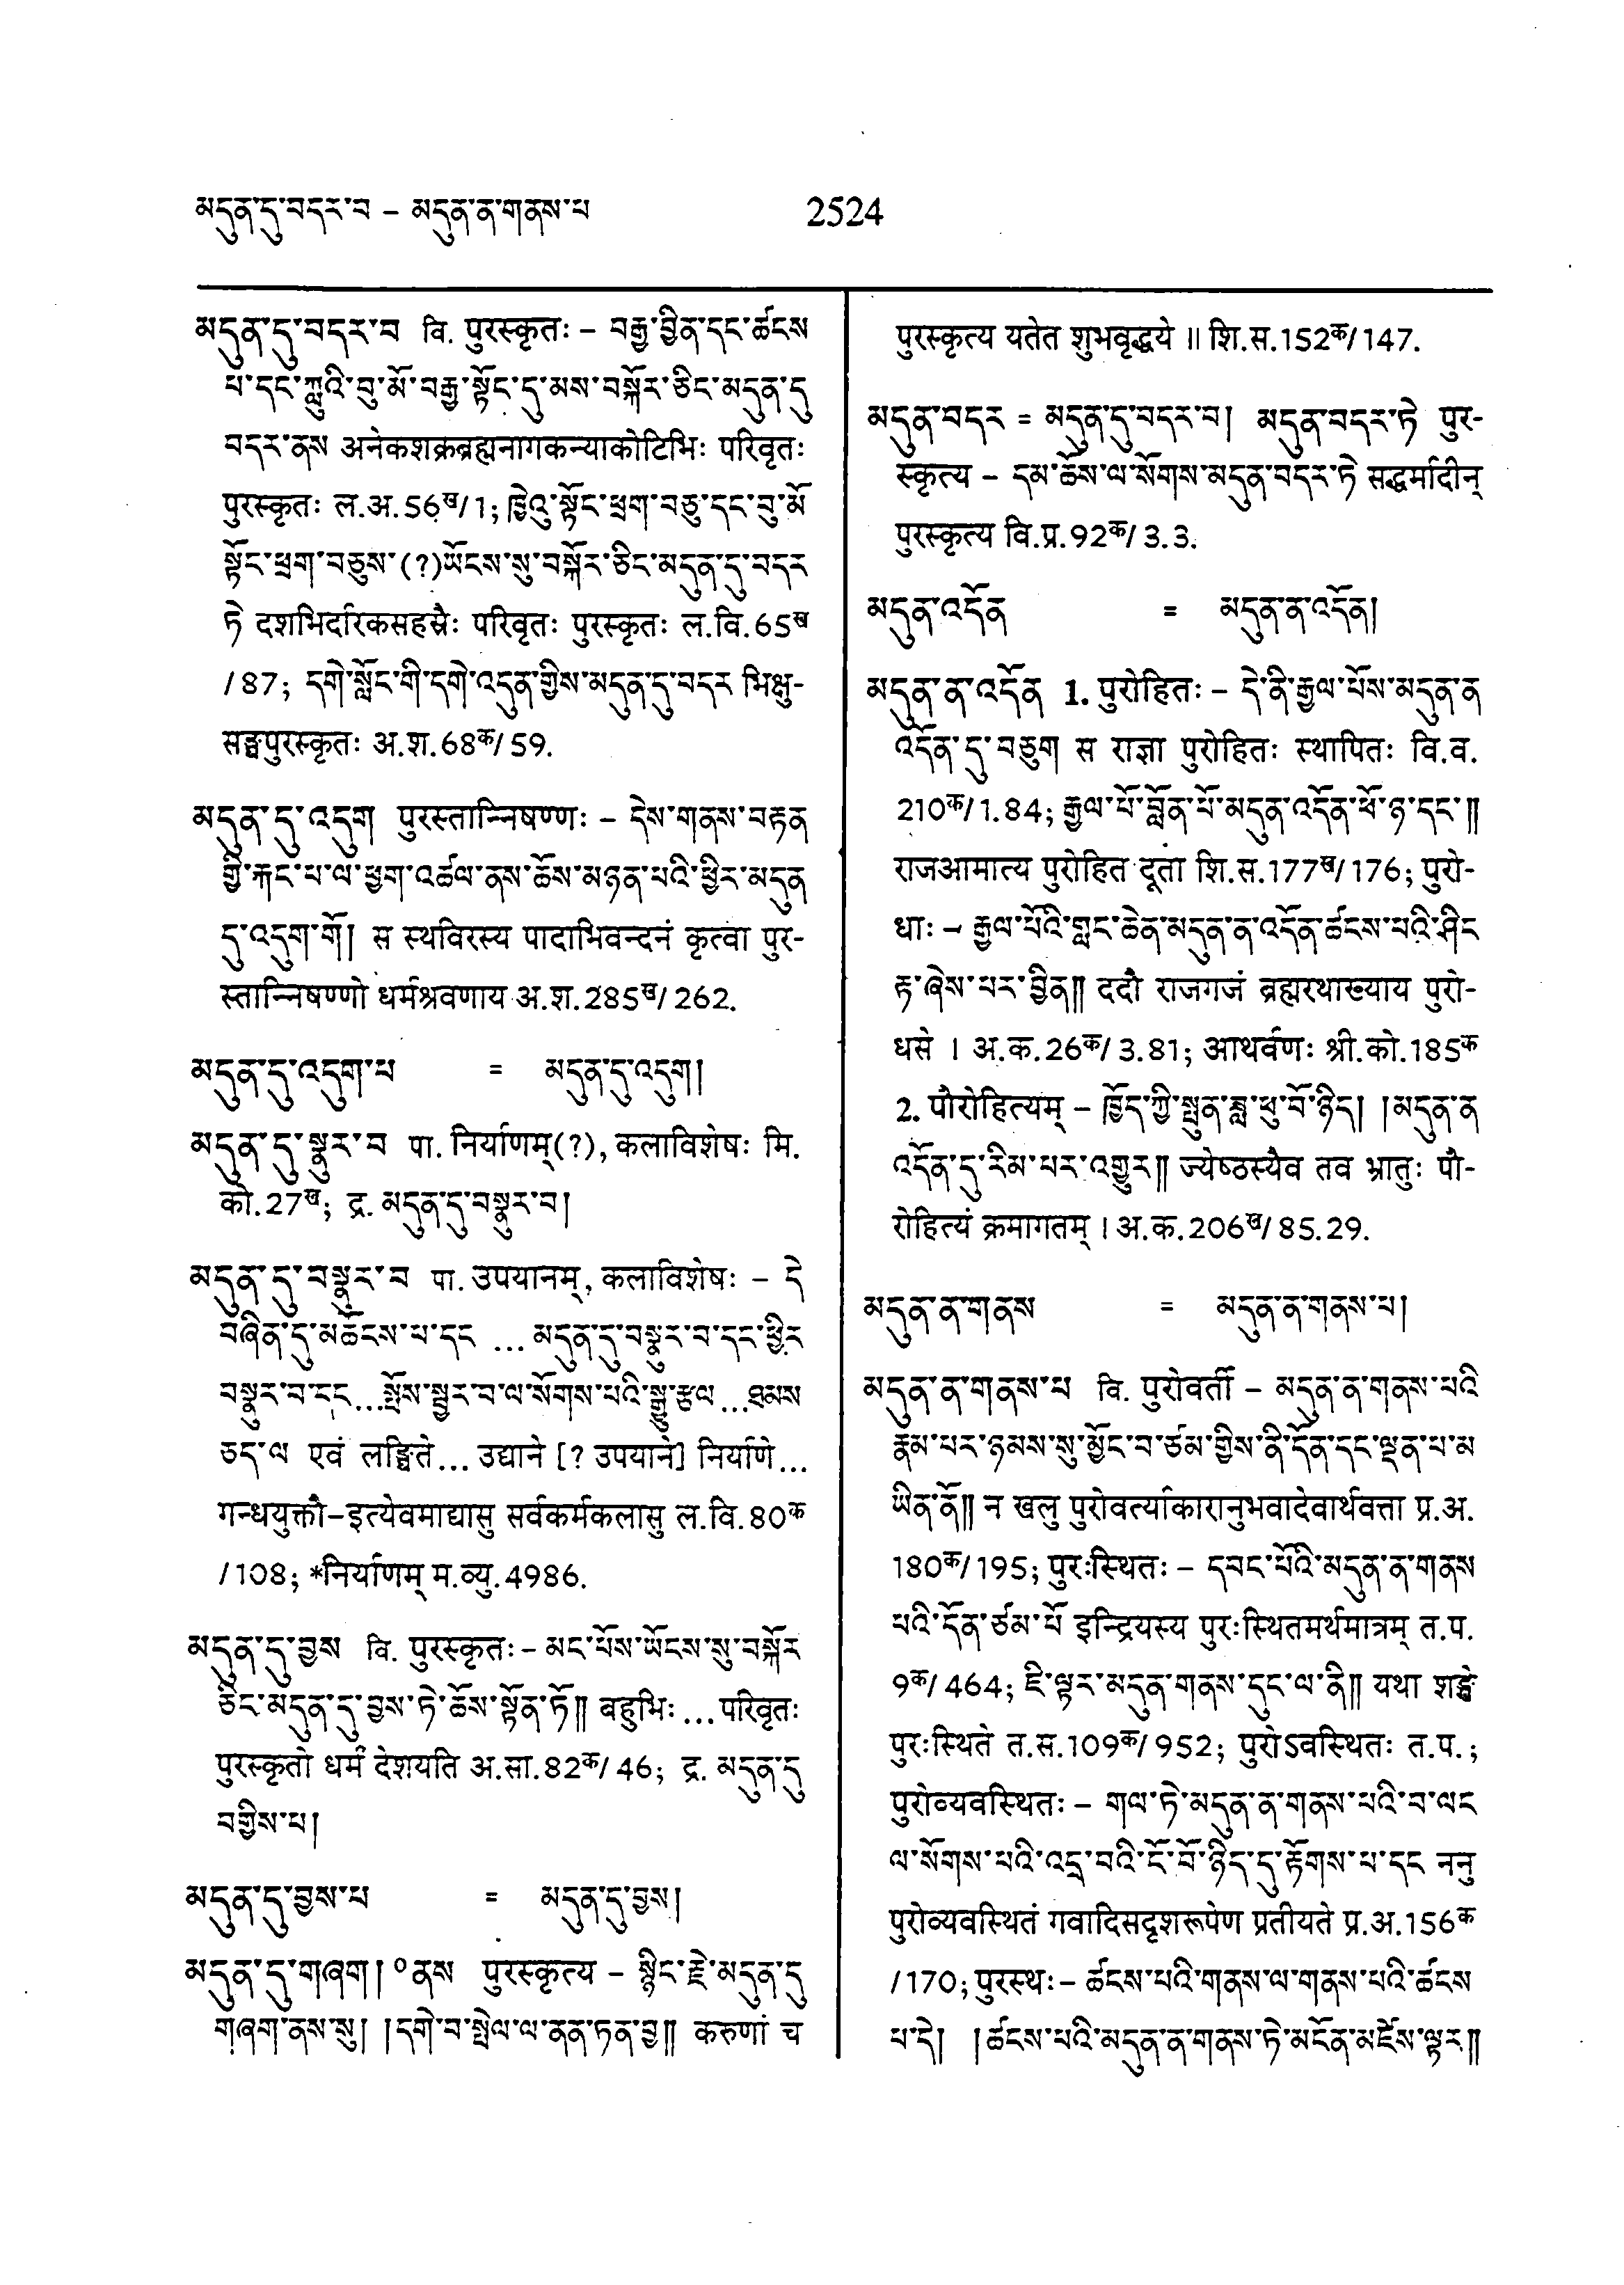 མདུན་དུ་བདར་བ – མདུན་ན་གནས་པ
2524
མདུན་དུ་བདར་བ वि. पुरस्कृतः – བརྒྱ་བྱིན་དང་ཚངས
པ་དང་ཀླུའི་བུ་མོ་བརྒྱ་སྟོང་དུ་མས་བསྐོར་ཅིང་མདུན་དུ
བདར་ནས अनेकशक्रब्रह्मनागकन्याकोटिभिः परिवृतः
पुरस्कृतः ल.अ.56ख/1; ཁྱེའུ་སྟོང་ཕྲག་བཅུ་དང་བུ་མོ
སྟོང་ཕྲག་བཅུས་(?)ཡོངས་སུ་བསྐོར་ཅིང་མདུན་དུ་བདར
ཏེ दशभिर्दारकसहस्रैः परिवृतः पुरस्कृतः ल.वि.65ख
/87; དགེ་སློང་གི་དགེ་འདུན་གྱིས་མདུན་དུ་བདར भिक्षु-
सङ्घपुरस्कृतः अ.श.68क/59.
མདུན་དུ་འདུག पुरस्तान्निषण्णः – དེས་གནས་བརྟན
གྱི་རྐང་པ་ལ་ཕྱག་འཚལ་ནས་ཆོས་མཉན་པའི་ཕྱིར་མདུན
དུ་འདུག་གོ། स स्थविरस्य पादाभिवन्दनं कृत्वा पुर-
स्तान्निषण्णो धर्मश्रवणाय अ.श.285ख/262.
མདུན་དུ་འདུག་པ = མདུན་དུ་འདུག།
མདུན་དུ་སྣུར་བ पा. निर्याणम्(?), कलाविशेषः मि.
को.27ख; द्र. མདུན་དུ་བསྣུར་བ།
མདུན་དུ་བསྣུར་བ पा. उपयानम्, कलाविशेषः – དེ
བཞིན་དུ་མཆོངས་པ་དང ... མདུན་དུ་བསྣུར་བ་དང་ཕྱིར
བསྣུར་བ་དང...སྤོས་སྦྱར་བ་ལ་སོགས་པའི་སྒྱུ་རྩལ...ཐམས
ཅད་ལ एवं लङ्घिते... उद्याने [? उपयाने] निर्याणे...
गन्धयुक्तौ–इत्येवमाद्यासु सर्वकर्मकलासु ल.वि.80क
/108; *निर्याणम् म.व्यु.4986.
མདུན་དུ་བྱས वि. पुरस्कृतः – མང་པོས་ཡོངས་སུ་བསྐོར
ཅིང་མདུན་དུ་བྱས་ཏེ་ཆོས་སྟོན་ཏོ།། बहुभिः ... परिवृतः
पुरस्कृतो धर्मं देशयति अ.सा.82क/46; द्र. མདུན་དུ
བགྱིས་པ།
མདུན་དུ་བྱས་པ = མདུན་དུ་བྱས།
མདུན་དུ་གཞག། ༠ནས पुरस्कृत्य – སྙིང་རྗེ་མདུན་དུ
གཞག་ནས་སུ། །དགེ་བ་སྤེལ་ལ་ནན་ཏན་བྱ།། करुणां च
पुरस्कृत्य यतेत शुभवृद्धये ॥ शि.स.152क/147.
མདུན་བདར = མདུན་དུ་བདར་བ། མདུན་བདར་ཏེ पुर-
स्कृत्य – དམ་ཆོས་ལ་སོགས་མདུན་བདར་ཏེ सद्धर्मादीन्
पुरस्कृत्य वि.प्र.92क/3.3.
མདུན་འདོན = མདུན་ན་འདོན།
མདུན་ན་འདོན 1. पुरोहितः – དེ་ནི་རྒྱལ་པོས་མདུན་ན
འདོན་དུ་བཅུག स राज्ञा पुरोहितः स्थापितः वि.व.
210क/1.84; རྒྱལ་པོ་བློན་པོ་མདུན་འདོན་ཕོ་ཉ་དང་།།
राजआमात्य पुरोहित दूता शि.स.177ख/176; पुरो-
धाः – རྒྱལ་པོའི་གླང་ཆེན་མདུན་ན་འདོན་ཚངས་པའི་ཤིང
རྟ་ཞེས་པར་བྱིན།། ददौ राजगजं ब्रह्मरथाख्याय पुरो-
धसे । अ.क.26क/3.81; आथर्वणः श्री.को.185क
2. पौरोहित्यम् – ཁྱོད་ཀྱི་སྤུན་ཟླ་ཕུ་བོ་ཉིད། །མདུན་ན
འདོན་དུ་རིམ་པར་འགྱུར།། ज्येष्ठस्यैव तव भ्रातुः पौ-
रोहित्यं क्रमागतम् । अ.क.206ख/85.29.
མདུན་ན་གནས = མདུན་ན་གནས་པ།
མདུན་ན་གནས་པ वि. पुरोवर्ती – མདུན་ན་གནས་པའི
རྣམ་པར་ཉམས་སུ་མྱོང་བ་ཙམ་གྱིས་ནི་དོན་དང་ལྡན་པ་མ
ཡིན་ནོ།། न खलु पुरोवर्त्याकारानुभवादेवार्थवत्ता प्र.अ.
180क/195; पुरःस्थितः – དབང་པོའི་མདུན་ན་གནས
པའི་དོན་ཙམ་པོ इन्द्रियस्य पुरःस्थितमर्थमात्रम् त.प.
9क/464; ཇི་ལྟར་མདུན་གནས་དུང་ལ་ནི།། यथा शङ्खे
पुरःस्थिते त.स.109क/952; पुरोऽवस्थितः त.प.;
पुरोव्यवस्थितः – གལ་ཏེ་མདུན་ན་གནས་པའི་བ་ལང
ལ་སོགས་པའི་འདྲ་བའི་ངོ་བོ་ཉིད་དུ་རྟོགས་པ་དང ननु
पुरोव्यवस्थितं गवादिसदृशरूपेण प्रतीयते प्र.अ.156क
/170; पुरस्थः – ཚངས་པའི་གནས་ལ་གནས་པའི་ཚངས
པ་དེ། །ཚངས་པའི་མདུན་ན་གནས་ཏེ་མངོན་མཛེས་ལྟར།།